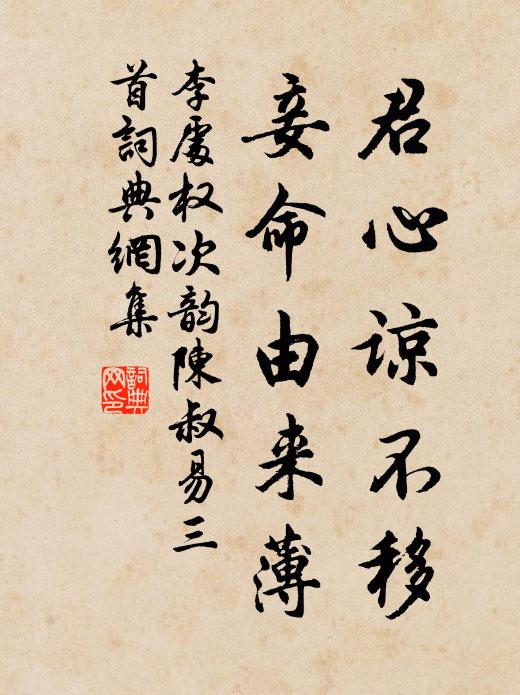 君心谅不移
妾命由来薄
李處权次韵陳叔易三
首詞典網集
詞典
网印